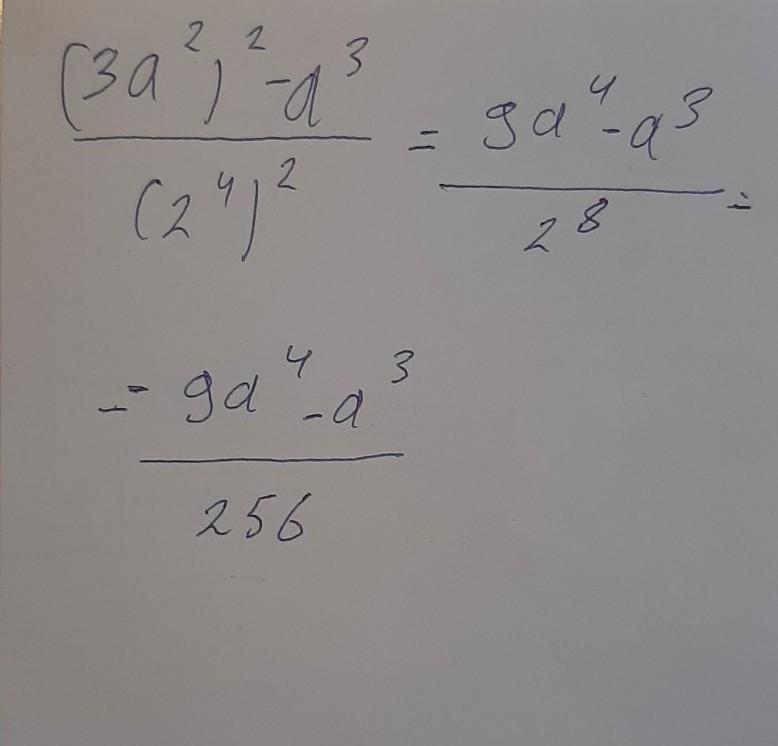 \frac{(3a^2)^2 - a^3}{(2^4)^2} = \frac{9a^4 - a^3}{2^8} =
= \frac{9a^4 - a^3}{256}